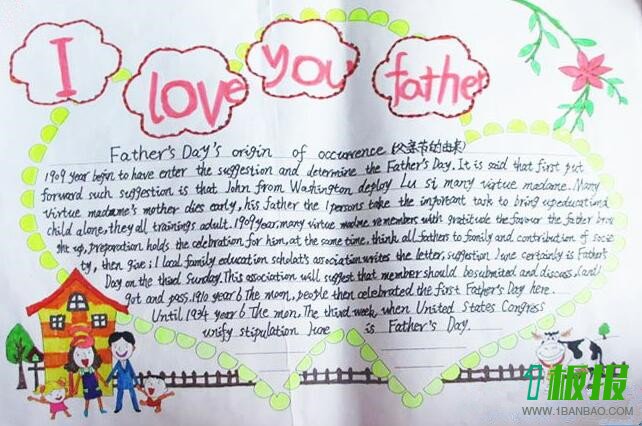 I love you father
Father's Day's origin of occurrence (父亲节的由来)
1909 year begin to have enter the suggestion and determine the Father's Day. It is said that first put
forward such suggestion is that John from Washington deploy Lu si many virtue madame. Many
virtue madame's mother dies early, his father the 1 persons take the important task to bring up education
child alone, they all trainings adult. 1909 year, many virtue madame remembers with gratitude the favour the father brou
ght up, preparation holds the celebration for him, at the same time, think all fathers to family and contribution of socie
ty, then give; I local family education scholat's association writes the letter, suggestion June certainly is Father's
Day on the third Sunday. This association will suggest that member should be submited and discuss, (and
got and pass. 1910 year 6 The moon, people then celebrated the first Father's Day here.
Until 1934 year 6 The mon. The third week when United States Congress
unify stipulation June is Father's Day.
板报
WWW.1BANBAO.COM